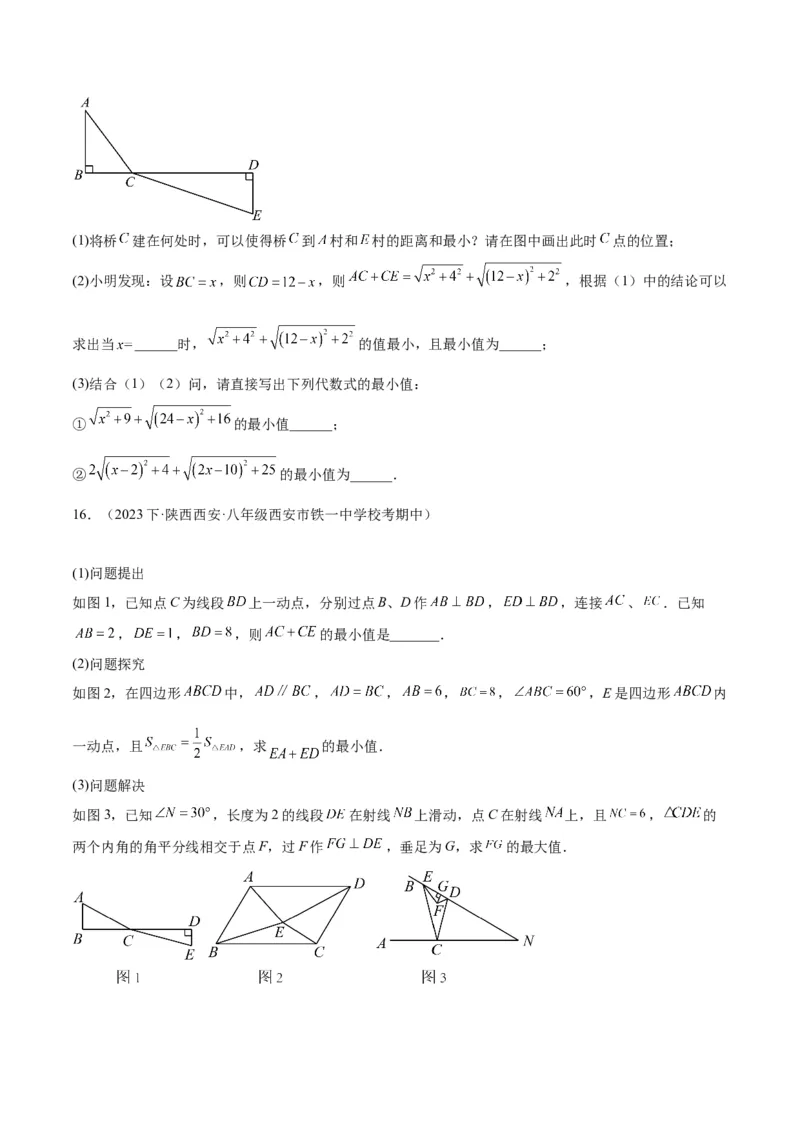 A
B
C
D
E
(1)将桥C建在何处时，可以使得桥C到A村和E村的距离和最小？请在图中画出此时C点的位置；
(2)小明发现：设BC=x，则CD=12-x，则AC+CE=√(x²+4²)+√((12-x)²+2²)，根据（1）中的结论可以
求出当x=______时，√(x²+4²)+√((12-x)²+2²)的值最小，且最小值为______；
(3)结合（1）（2）问，请直接写出下列代数式的最小值：
①√(x²+9)+√((24-x)²+16)的最小值______；
②2√((x-2)²+4)+√((2x-10)²+25)的最小值为______．
16．（2023下·陕西西安·八年级西安市铁一中学校考期中）
(1)问题提出
如图1，已知点C为线段BD上一动点，分别过点B、D作AB⊥BD，ED⊥BD，连接AC、EC．已知
AB=2，DE=1，BD=8，则AC+CE的最小值是_______．
(2)问题探究
如图2，在四边形ABCD中，AD∥BC，AD=BC，AB=6，BC=8，∠ABC=60°，E是四边形ABCD内
一动点，且S△EBC=1/2S△EAD，求EA+ED的最小值．
(3)问题解决
如图3，已知∠N=30°，长度为2的线段DE在射线NB上滑动，点C在射线NA上，且NC=6，△CDE的
两个内角的角平分线相交于点F，过F作FG⊥DE，垂足为G，求FG的最大值．
A
B
C
D
E
图1
A
D
E
B
C
图2
B
E
G
D
F
A
C
N
图3